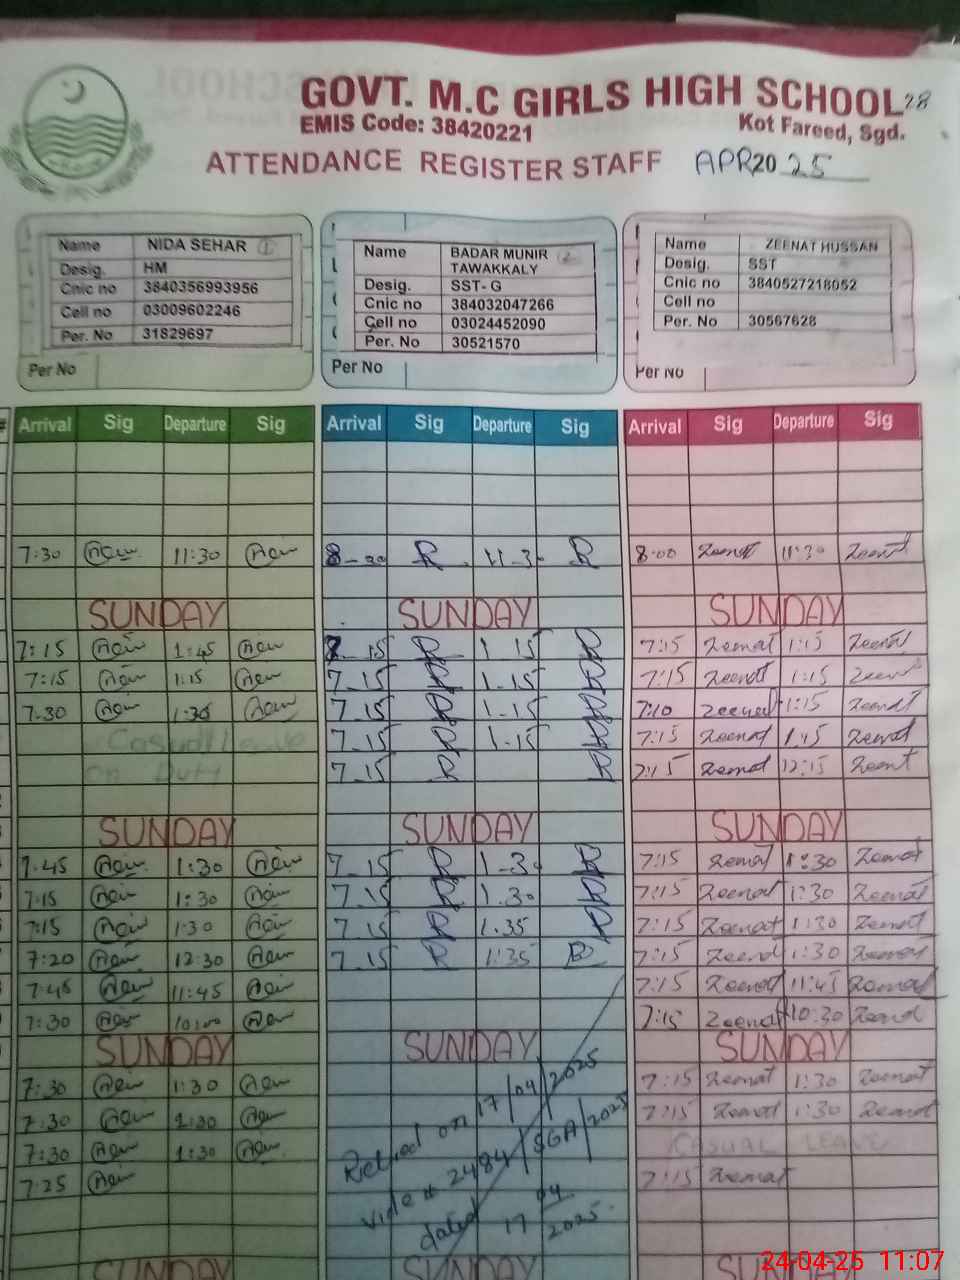 GOVT. M.C GIRLS HIGH SCHOOL 28
EMIS Code: 38420221 Kot Fareed, Sgd.
ATTENDANCE REGISTER STAFF APR 2025
Name NIDA SEHAR 1
Desig. HM
Cnic no 3840356993956
Cell no 03009602246
Per. No 31829697
Per No
Name BADAR MUNIR 2
TAWAKKALY
Desig. SST- G
Cnic no 384032047266
Cell no 03024452090
Per. No 30521570
Per No
Name ZEENAT HUSSAN
Desig. SST
Cnic no 3840527218052
Cell no
Per. No 30567628
Per No
Arrival Sig Departure Sig Arrival Sig Departure Sig Arrival Sig Departure Sig
7:30 11:30 11-3 8:00 Zeenat 11:30 Zeenat
SUNDAY SUNDAY SUNDAY
7:15 1:45 15 1 15 7:15 Zeenat 1:15 Zeenat
7:15 1:15 7_15 1-15 7:15 Zeenat 1:15 Zeenat
7.30 1:30 7_15 1-15 7:10 Zeenat 1:15 Zeenat
Casual Leave 7_15 1-15 7:15 Zeenat Zeenat
on Duty 7_15 Zeenat 12:15 Zeenat
SUNDAY SUNDAY SUNDAY
7.45 1:30 7_15 1-30 7:15 Zeenat 1:30 Zeenat
7:15 1:30 7_15 1.30 7:15 Zeenat 1:30 Zeenat
7:15 1:30 7_15 1.35 7:15 Zeenat 1:30 Zeenat
7:20 12:30 7_15 1:35 7:15 Zeenat 1:30 Zeenat
7:45 11:45 7:15 Zeenat 11:45 Zeenat
7:30 10:00 7:15 Zeenat 10:30 Zeenat
SUNDAY SUNDAY SUNDAY
7:30 1:30 7:15 Zeenat 1:30 Zeenat
7:30 1:30 7:15 Zeenat 1:30 Zeenat
7:30 1:30 CASUAL LEAVE
7:25 7:15 Zeenat
Retired on 17/04/2025
vide # 2484/SGA/2025
dated 17 04 2025.
SUNDAY SUNDAY
24-04-25 11:07